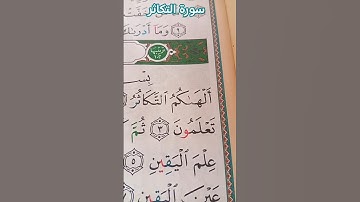 سورة التكاثر
وَمَا أَدْرَىٰكَ
أَلْهَىٰكُمُ ٱلتَّكَاثُرُ
تَعْلَمُونَ ٣ ثُمَّ
عِلْمَ ٱلْيَقِينِ ٥
عَيْنَ ٱلْيَقِينِ